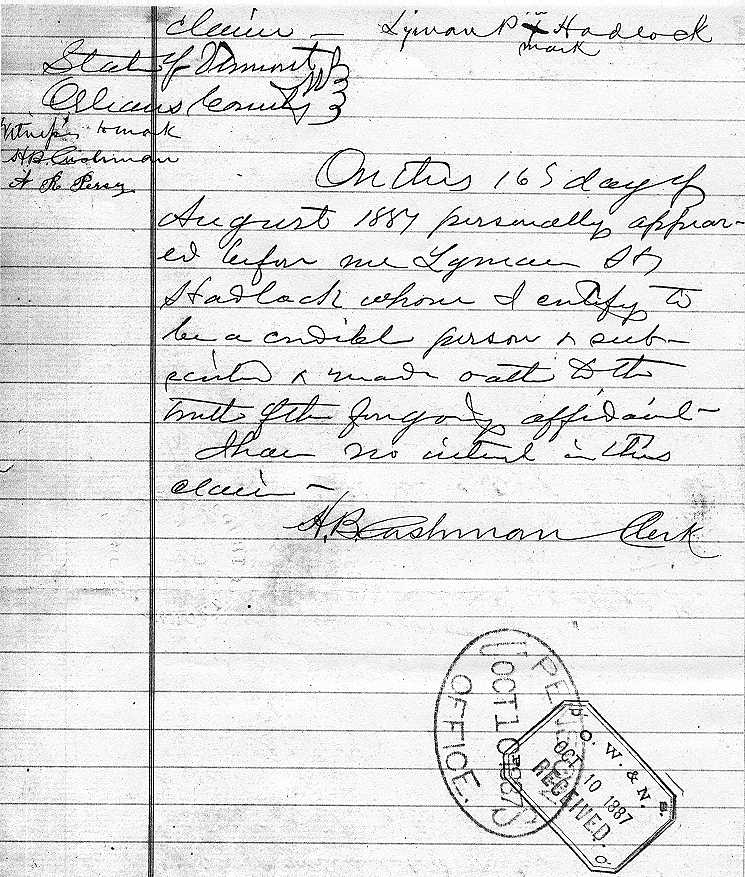 claim — Lyman P X Hadlock
mark
State of Vermont
Orleans County ss
Witness to mark
H.B. Cushman
A R Percy
On this 16 day of
August 1887 personally appear-
ed before me Lyman
Hadlock whom I certify to
be a credible person & sub-
scribed & made oath to the
truth of the foregoing affidavit —
I have no interest in this
claim —
H.B. Cushman Clerk
U.S. PENSION
OCT 10 1887
OFFICE.
P. O. W. & N. B.
OCT 10 1887
RECEIVED.